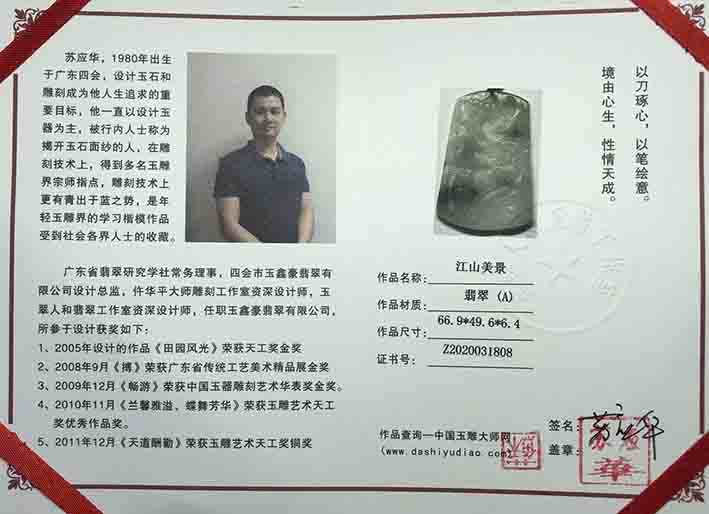 苏应华，1980年出生
于广东四会，设计玉石和
雕刻成为他人生追求的重
要目标，他一直以设计玉
器为主，被行内人士称为
揭开玉石面纱的人，在雕
刻技术上，得到多名玉雕
界宗师指点，雕刻技术上
更有青出于蓝之势，是年
轻玉雕界的学习楷模作品
受到社会各界人士的收藏。
广东省翡翠研究学社常务理事，四会市玉鑫豪翡翠有
限公司设计总监，仵华平大师雕刻工作室资深设计师，玉
翠人和翡翠工作室资深设计师，任职玉鑫豪翡翠有限公司，
所参于设计获奖如下：
1、2005年设计的作品《田园风光》荣获天工奖金奖
2、2008年9月《搏》荣获广东省传统工艺美术精品展金奖
3、2009年12月《畅游》荣获中国玉器雕刻艺术华表奖金奖。
4、2010年11月《兰馨雅溢、蝶舞芳华》荣获玉雕艺术天工
奖优秀作品奖。
5、2011年12月《天道酬勤》荣获玉雕艺术天工奖铜奖
以刀琢心，以笔绘意。
境由心生，性情天成。
作品名称： 江山美景
作品材质： 翡翠（A）
作品尺寸： 66.9*49.6*6.4
证书号： Z2020031808
作品查询—中国玉雕大师网
(www.dashiyudiao.com)
签名： 苏应华
盖章：